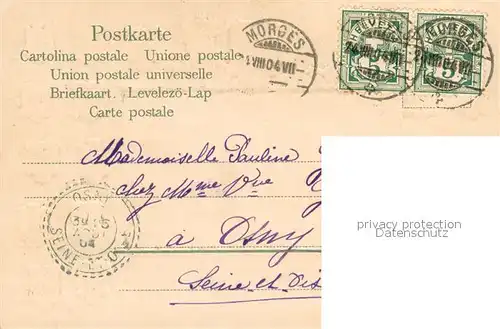 Postkarte
Cartolina postale Unione postale
Union postale universelle
Briefkaart. Levelező-Lap
Carte postale
MORGES
VIII 04 VII
Mademoiselle Pauline
chez Mme Vve
à Osny
Seine et Oise
OSNY
04
SEINE-ET-O
privacy protection
Datenschutz